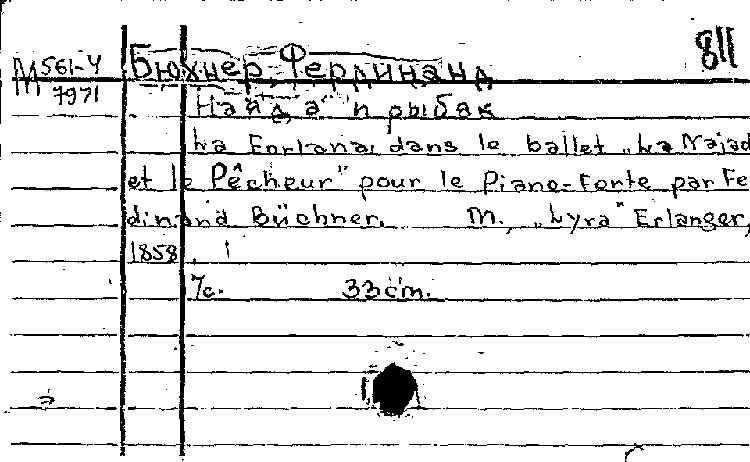 811
М 561-4 Бюхнер, Фердинанд
7971
Наяда и рыбак
La Forlana, dans le ballet „La Najad
et le Pêcheur" pour le Piano-Forte par Fe
dinand Büchner. М., „Lyra" Erlanger,
1858.
7с. 33cm.